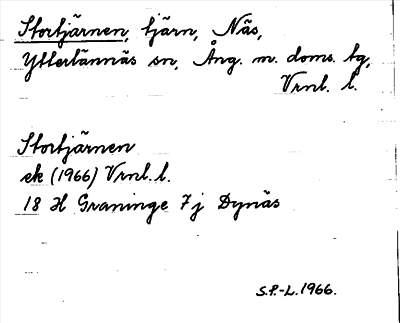 Stortjärnen, tjärn, Näs,
Ytterlännäs sn, Ång. m. doms. tg,
Vrnl. l.
Stortjärnen
ek (1966) Vrnl. l.
18 H Graninge 7j Dynäs
S.P.-L. 1966.